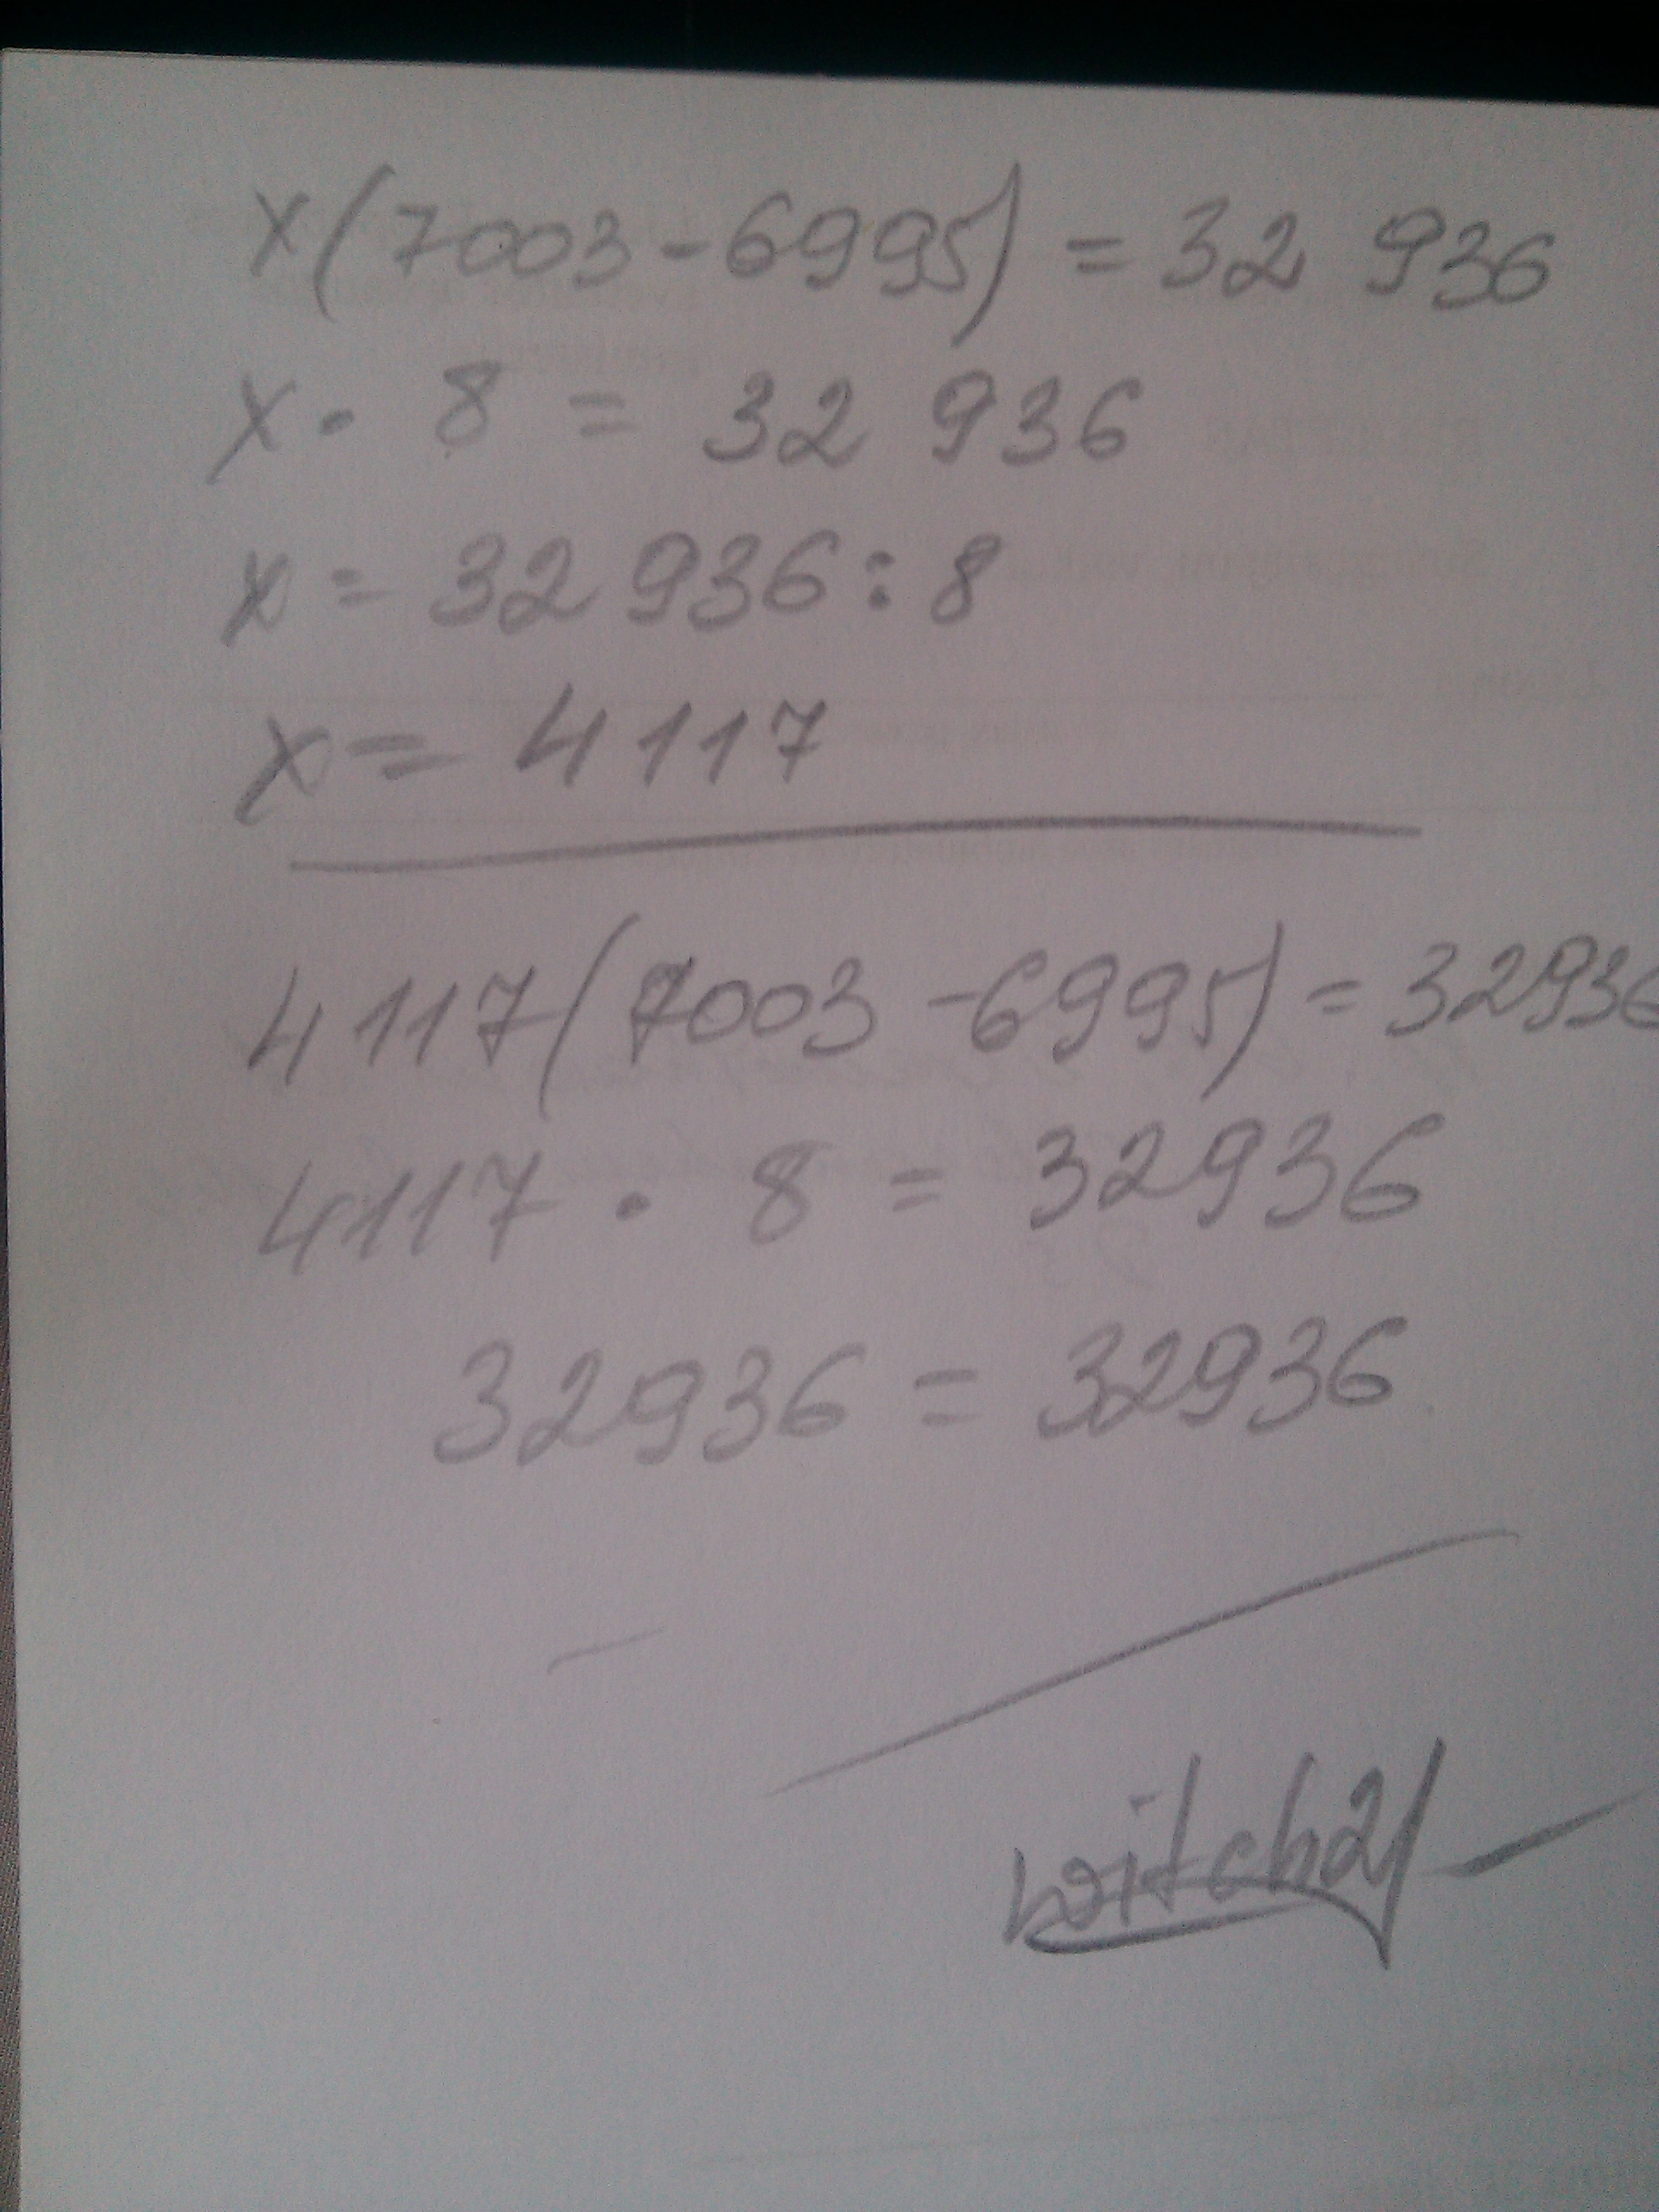 x(7003-6995)=32 936
x · 8 = 32 936
x = 32 936 : 8
x = 4117
4117(7003-6995)=32936
4117 · 8 = 32936
32936 = 32936
witch21